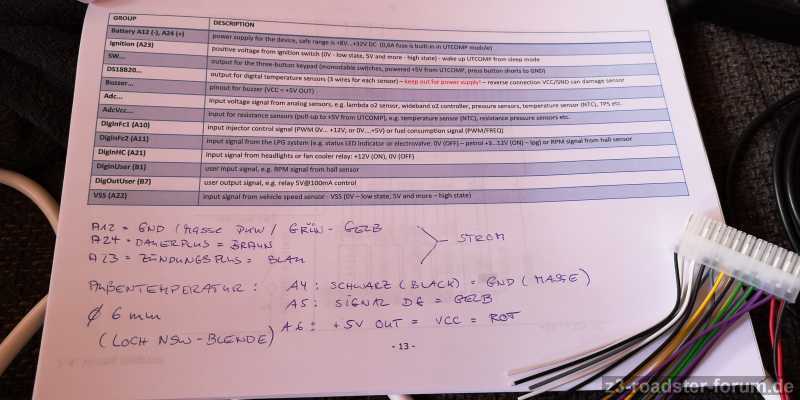 GROUP DESCRIPTION
Battery A12 (-), A24 (+) power supply for the device, safe range is +8V...+32V DC (0,6A fuse is built-in in UTCOMP module)
Ignition (A23) positive voltage from ignition switch (0V - low state, 5V and more - high state) - wake up UTCOMP from sleep mode
SW... output for the three-button keypad (monostable switches, powered +5V from UTCOMP, press button shorts to GND)
DS18B20... output for digital temperature sensors (3 wires for each sensor) – keep out for power supply! – reverse connection VCC/GND can damage sensor
Buzzer... pinout for buzzer (VCC = +5V OUT)
Adc... input voltage signal from analog sensors, e.g. lambda o2 sensor, wideband o2 controller, pressure sensors, temperature sensor (NTC), TPS etc.
AdcVcc... input for resistance sensors (pull-up to +5V from UTCOMP), e.g. temperature sensor (NTC), resistance pressure sensors etc.
DigInFc1 (A10) input injector control signal (PWM 0V... +12V, or 0V...,+5V) or fuel consumption signal (PWM/FREQ)
DigInFc2 (A11) input signal from the LPG system (e.g. status LED indicator or electrovalve: 0V (OFF) – petrol +3...12V (ON) – lpg) or RPM signal from hall sensor
DigInHC (A21) input signal from headlights or fan cooler relay: +12V (ON), 0V (OFF)
DigInUser (B1) user input signal, e.g. RPM signal from hall sensor
DigOutUser (B7) user output signal, e.g. relay 5V@100mA control
VSS (A22) input signal from vehicle speed sensor - VSS (0V – low state, 5V and more – high state)
A12 = GND / MASSE PKW / GRÜN - GELB
A24 = DAUERPLUS = BRAUN
STROM
A23 = ZÜNDUNGSPLUS = BLAU
AUßENTEMPERATUR : A4 : SCHWARZ (BLACK) = GND (MASSE)
A5 : SIGNAL DG = GELB
Ø 6 mm
A6 : +5V OUT = VCC = ROT
(LOCH NSW-BLENDE)
- 13 -
z3-roadster-forum.de